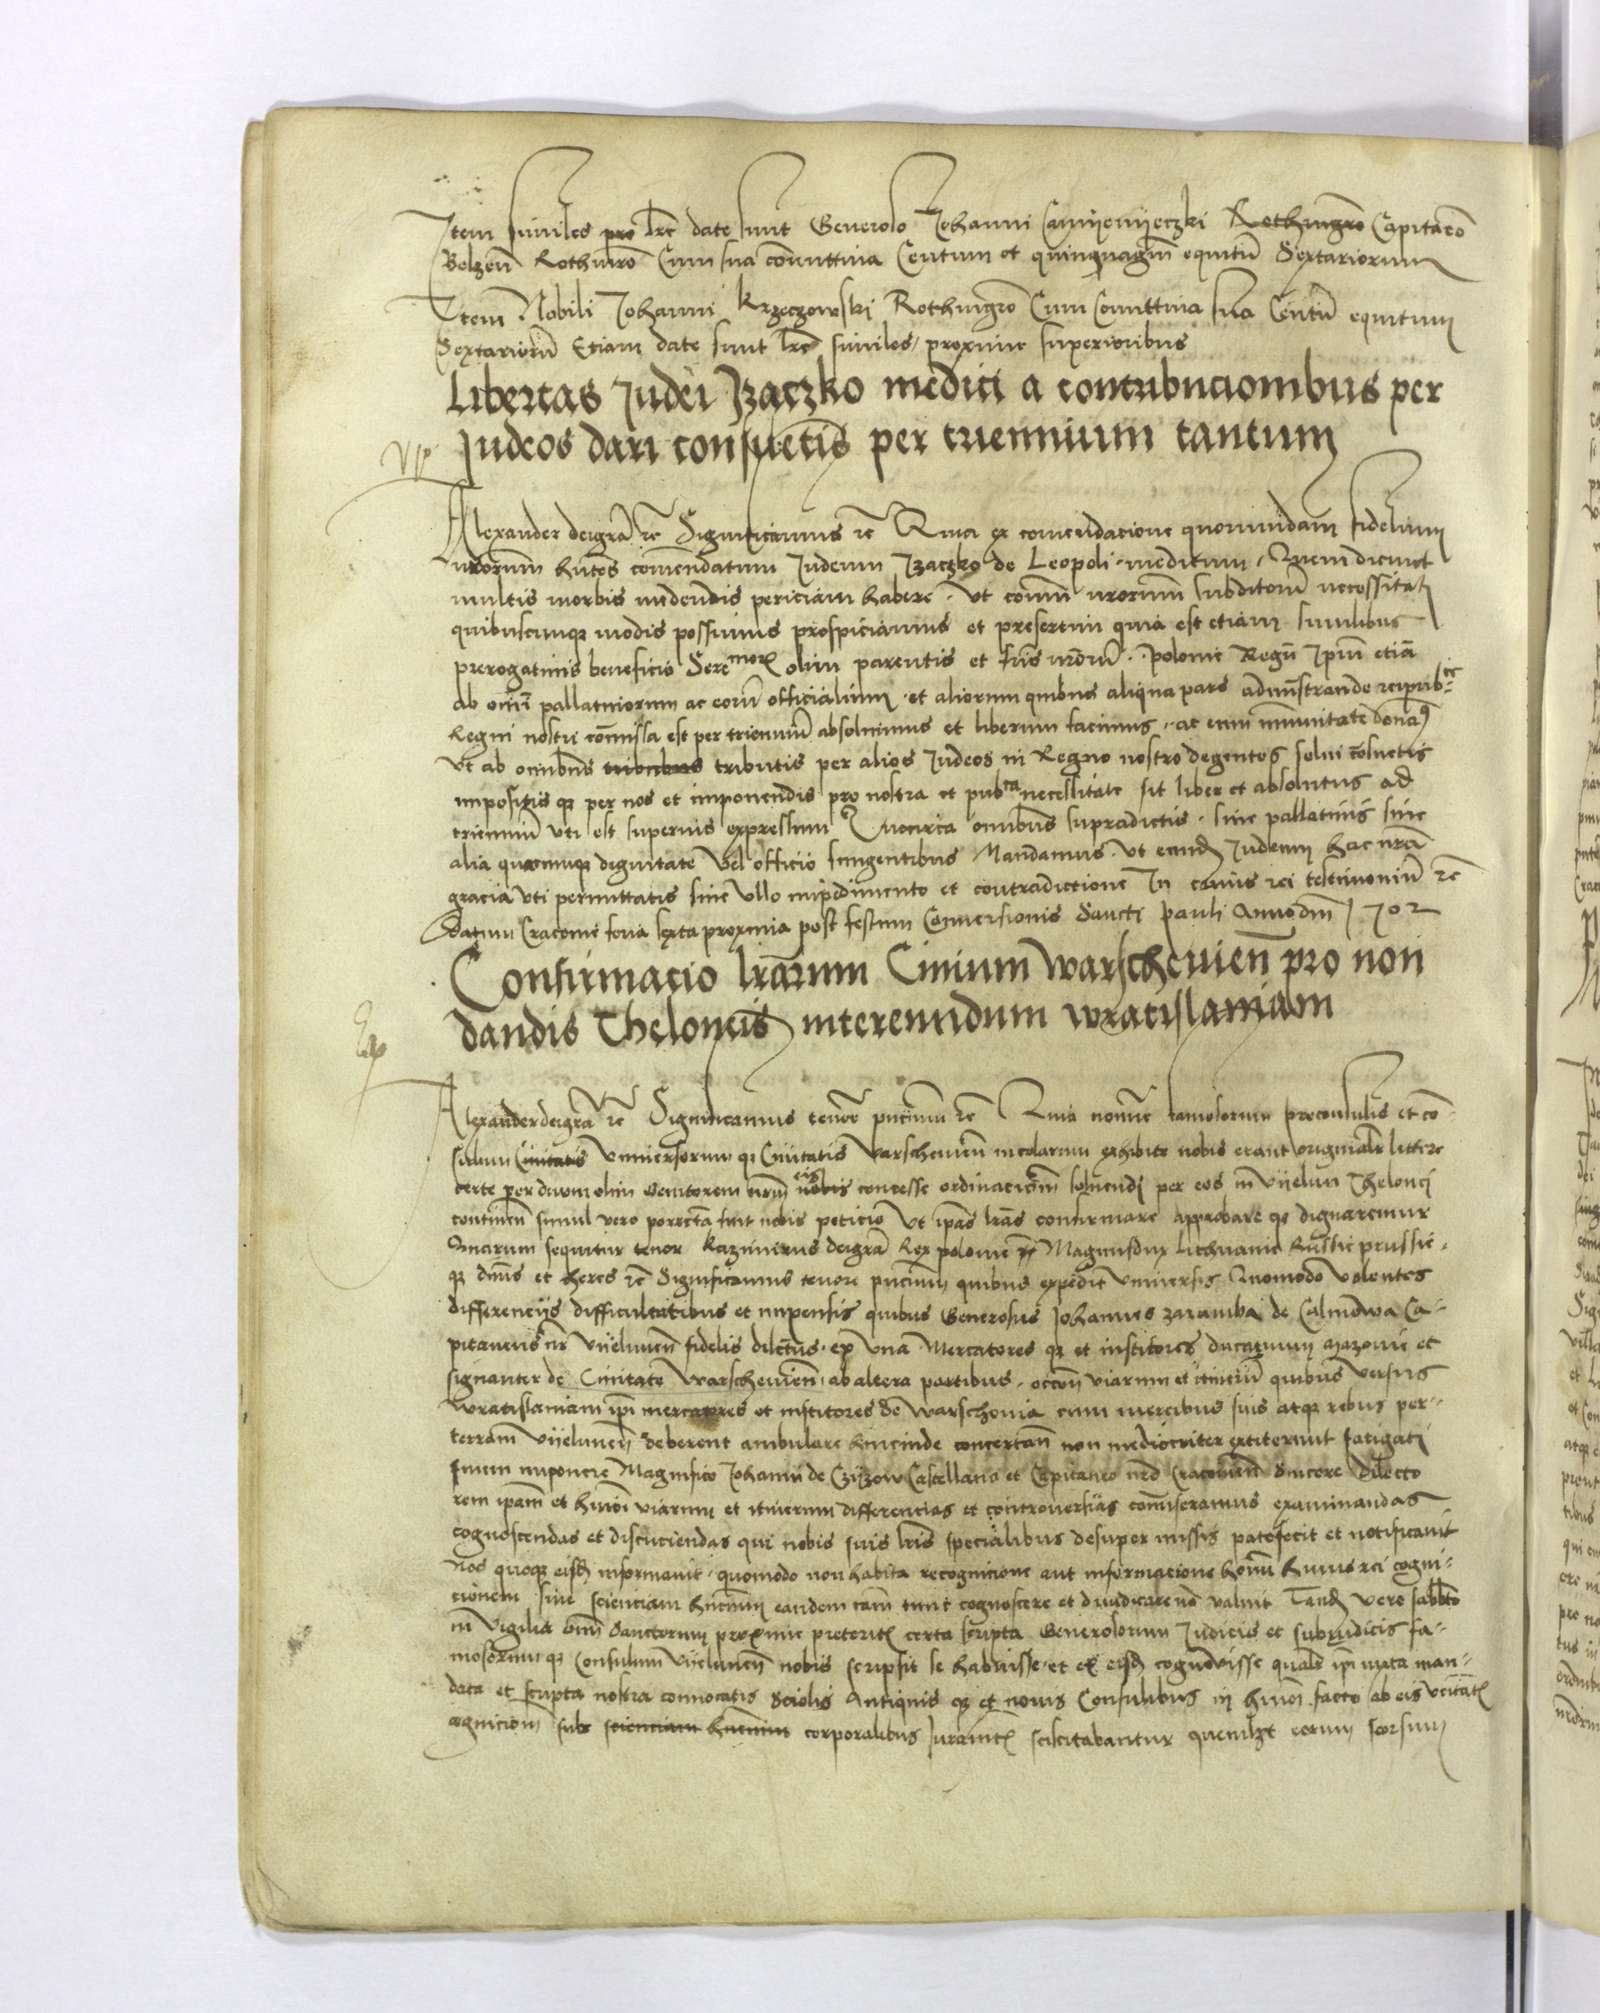 Item similes pro lrē date sunt Generoso Johanni Camyenyeczki Rothmgrō Capitaeo
Belzeñ Rothmrō Cum sua comittiua Centum et quinquagin̄ equitū Sextariorum
Item Nobili Johanni Krzeczowski Rothmgrō Cum Comittiua sua Centū equitum
Sextariorū Etiam date sunt lrē similes proxime superioribus
Libertas Judei Jzaczko medici a contribucionibus per
Judeos dari consuetis per triennium tantum
Alexander dei grā rē Significamus rē Quia ex comendacione quorundam fidelium
nrorum hntēs comendatum Judeum Jzaczko de Leopoli medicum Quem dicunt
multis morbis medendis periciam habere Ut comuni nrorum subditorū necessitati
quibuscunq modis possumus prospiciamus et presertim quia est etiam similibus
prerogatiuis beneficio Seremorū olim parentis et frīs nrorū Polonie Regū Ipm etiā
ab omī pallatinorum ac eorū officialium et aliorum quibus aliqua pars administrande reipubce
Regni nostri comissa est per trienniū absoluimus et liberum facimus ac eum immunitate donamus
Ut ab omnibus tributis per alios Judeos in Regno nostro degentes solui cōsuetis
impositis q per nos et imponendis pro nostra et pubca necessitate sit liber et absolutus ad
trienniū uti est superius expressum Quocirca omnibus supradictis siue pallatinis siue
alia quacunq dignitate vel officio fungentibus Mandamus ut eund Judeum hac nrā
gracia uti permittatis sine ullo impedimento et contradictione In cuius rei testimoniū rē
Datum Cracouie feria sexta proxima post festum Conuersionis Sancti Pauli Anno dm̄ 1502
Confirmacio lrārum Ciuium Warscheuieñ pro non
dandis Theloneis intereundum Wratislauiam
Alexander dei grā rē Significamus tenore pn̄cium rē Quia nomīe famosorum preconsulis et con-
sulum Ciuitatis Uniuersorum q Ciuitatis Varscheuien̄ incolarum exhibite nobis erant originales littere
certe per diuum olim Genitorem nrum eis nobis concesse ordinacionem soluendi per eos in Vyelun Thelonei
continen̄ simul vero porrecta fuit nobis peticio Ut ipās lrās confirmare approbare q dignaremur
Quarum sequitur tenor Kazimirus dei grā Rex polonie Magnusdux Lithuanie Russie prussie
q dnūs et heres rē Significamus tenore pn̄cium quibus expedit uniuersis Quomodo volentes
differencijs difficultatibus et impensis quibus Generosus Johannes zaramba de Calinowa Ca-
pitaneus nr̄ Vyelunen̄ fidelis dilectus ex una Mercatores q et institores ducatuum Mazouie et
signanter de Ciuitate Warscheuien̄ ab altera partibus occōn̄ viarum et itinerū quibus versus
Wratislauiam ipī mercatores et institores de Warschouia cum mercibus suis atq rebus per
terram Vyelunen̄ deberent ambulare hincinde concertan̄ non mediocriter extiterunt fatigati
finem imponere Magnifico Johanni de Czyzow Castellano et Capitaneo nrō Cracouien̄ Sincere dilecto
rem ipam et hmōi viarum et itinerum differencias et controuersias comiseramus examinandas
cognoscendas et discuciendas qui nobis suis lrīs specialibus desuper missis patefecit et notificauit
Nos quoq eisd informauit quomodo non habita recognicione aut informacione hominū huius rei cogni-
cionem siue scienciam hncium eandem cam tunc cognoscere et diiudicare non valuit Tand vero sabbto
in Vigilia Omī Sanctorum proxime preteriti certa scripta Generosorum Judicis et subiudicis fa-
mosorum q Consulum Vyelunen̄ nobis scripsit se habuisse et ex eisd cognouisse quale ipī iuxta man-
data et scripta nostra conuocatis Sciolis Antiquis q et nouis Consulibus in hmōi facto ab eis veritatis
cognicionē sub scienciam hncium corporalibus Juramētis sciscitabantur quemlibet eorum seorsum